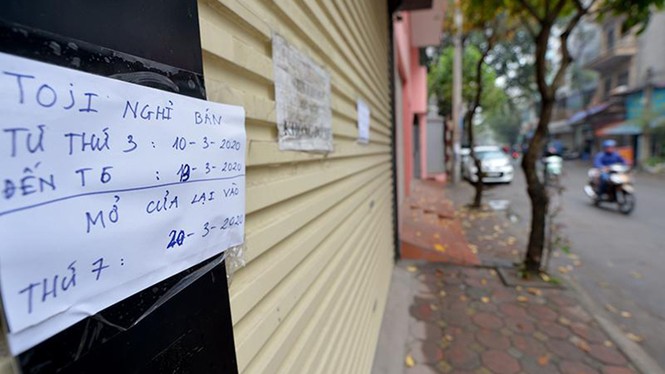 TOJI NGHỈ BÁN
TỪ THỨ 3 : 10-3-2020
ĐẾN T6 : 13-3-2020
MỞ CỬA LẠI VÀO
THỨ 7 : 20-3-2020